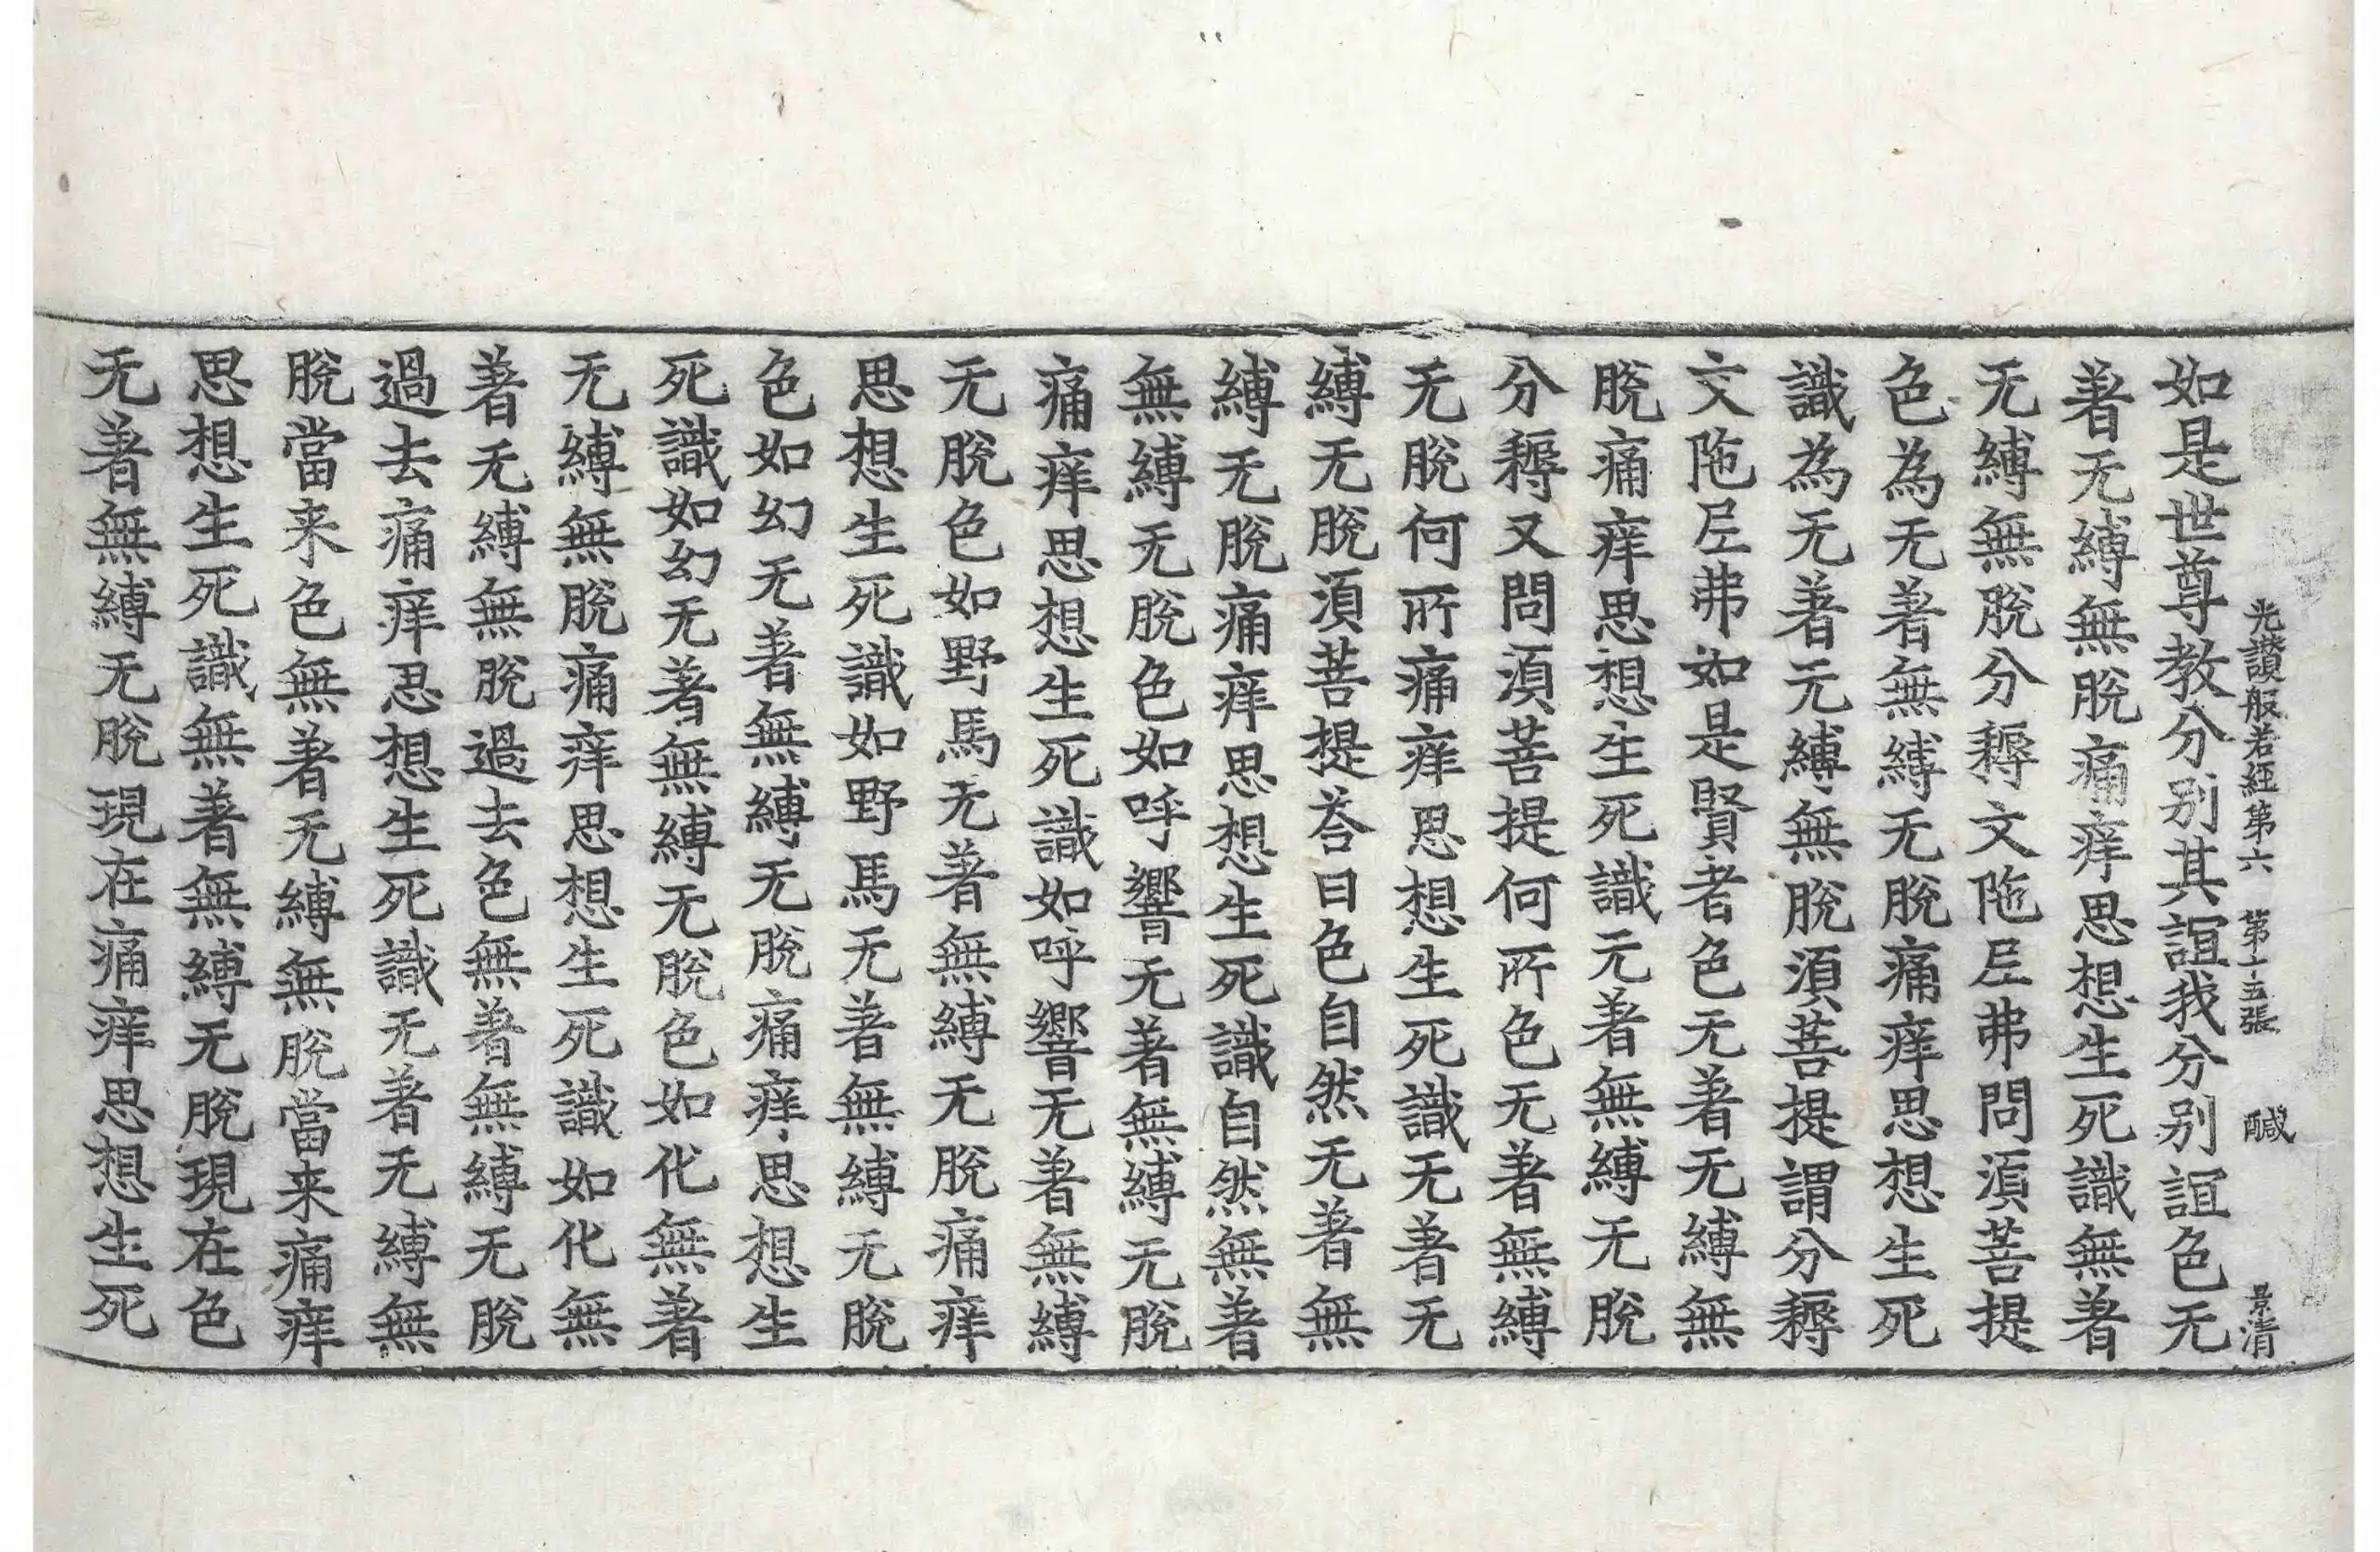 光讚般若經第六 第十五張 醎 景清
如是世尊教分别其誼我分别誼色无
著无縛無脫痛痒思想生死識無著
无縛無脫分耨文陁尼弗問湏菩提
色為无著無縛无脫痛痒思想生死
識為无著无縛無脫湏菩提謂分耨
文陁尼弗如是賢者色无著无縛無
脫痛痒思想生死識无著無縛无脫
分耨又問湏菩提何所色无著無縛
无脫何所痛痒思想生死識无著无
縛无脫湏菩提荅曰色自然无著無
縛无脫痛痒思想生死識自然無著
無縛无脫色如呼響无著無縛无脫
痛痒思想生死識如呼響无著無縛
无脫色如野馬无著無縛无脫痛痒
思想生死識如野馬无著無縛无脫
色如幻无著無縛无脫痛痒思想生
死識如幻无著無縛无脫色如化無著
无縛無脫痛痒思想生死識如化無
著无縛無脫過去色無著無縛无脫
過去痛痒思想生死識无著无縛無
脫當来色無著无縛無脫當来痛痒
思想生死識無著無縛无脫現在色
无著無縛无脫現在痛痒思想生死